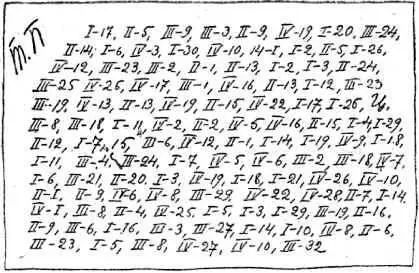 Т.П
I-17, II-5, III-9, III-3, II-9, IV-19, I-20, III-24,
II-14, I-6, IV-3, I-30, IV-10, 14-I, I-2, II-5, I-26,
IV-12, III-23, III-2, II-1, II-13, I-2, I-3, II-24,
III-25, IV-26, IV-17, III-1, IV-16, II-13, I-12, III-23
III-19, IV-13, II-13, IV-19, II-15, IV-22, I-17, I-26, Ц,
III-8, III-18, I-11, IV-2, II-2, IV-5, IV-16, II-15, I-4, I-29,
II-12, I-7, 15, III-6, IV-12, II-1, I-14, I-19, IV-9, I-18,
I-11, III-4, III-24, I-7, IV-5, IV-6, III-2, III-18, IV-7,
I-6, III-21, II-20, I-3, IV-19, I-18, I-21, IV-26, IV-10,
II-I, II-9, IV-6, IV-8, III-29, IV-22, IV-28, II-7, I-14,
IV-I, III-8, II-4, IV-25, I-5, I-3, I-29, III-19, II-16,
II-9, III-6, I-16, III-3, III-27, I-14, I-10, IV-8, II-6,
III-23, I-5, III-8, IV-27, IV-10, III-32